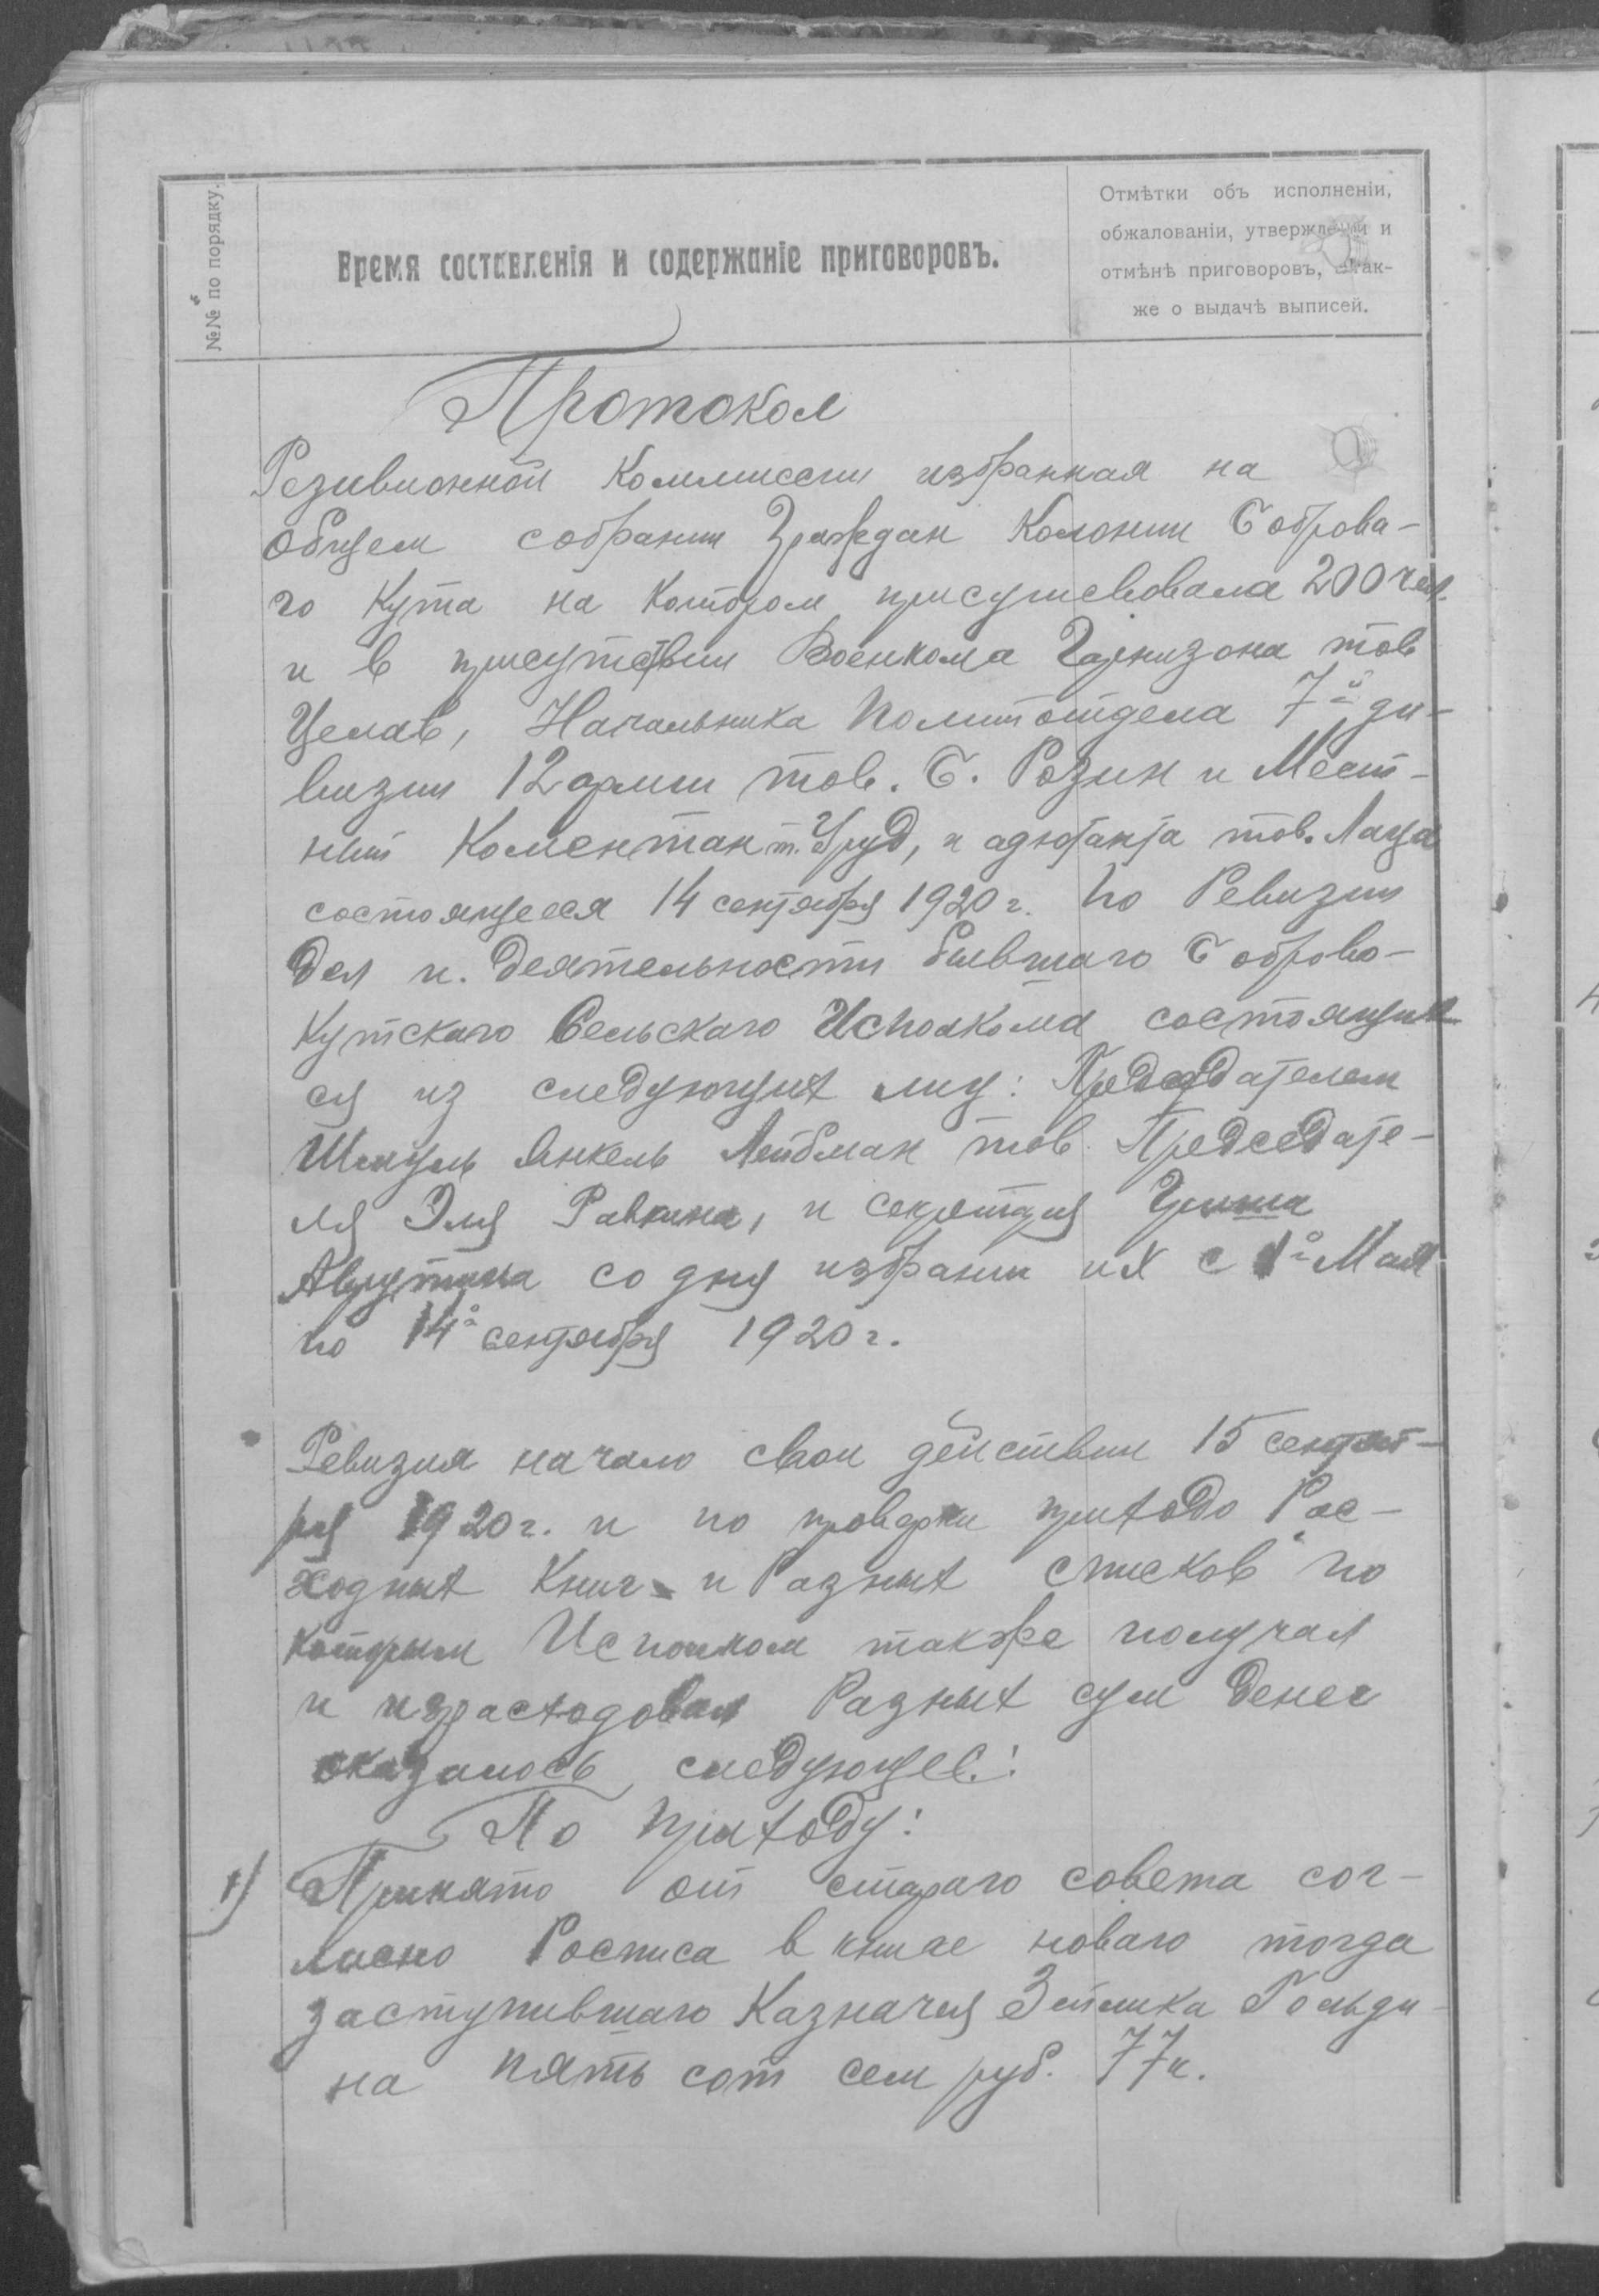 №№ по порядку.
Время составленія и содержаніе приговоровъ.
Отмѣтки объ исполненіи,
обжалованіи, утвержденіи и
отмѣнѣ приговоровъ, а так-
же о выдачѣ выписей.
Протокол
Резивионной Коммиссии избранная на
общем собрании Граждан Колонии Доброва-
го Кута на котором присутсвовала 200 чел.
и в присутствии Военкома Гарнизона тов
Целав, Начальника Политотдела 7й ди-
визии 12 армии тов. С. Розин и Мест-
ний Коментант т. Груд, и адютанта тов. Лаца
состоящееся 14 сентября 1920 г. по Ревизии
Дел и. Деятельности бывшаго Доброво-
Кутскаго Сельскаго Исполкома состоящи
ся из следующих лиц: Председателем
Шмуль Янкель Лейбман тов. Председате-
ля Эля Равкина, и секретаря Гриша
Аврутина со дня избрании их с 1го Мая
по 14го сентября 1920 г.
Ревизия начало свои действии 15 сентяб-
ря 1920 г. и по проверки приходо Рас-
ходных Книг и Разных списков по
которым Исполком также получал
и израсходовал Разных сум Денег
оказалось следующее:
По приходу:
1) Принято от стараго совета сог-
ласно Росписа в книге новаго тогда
заступившаго Казначея Зейлика Гольди-
на пять сот сем руб. 77 к.